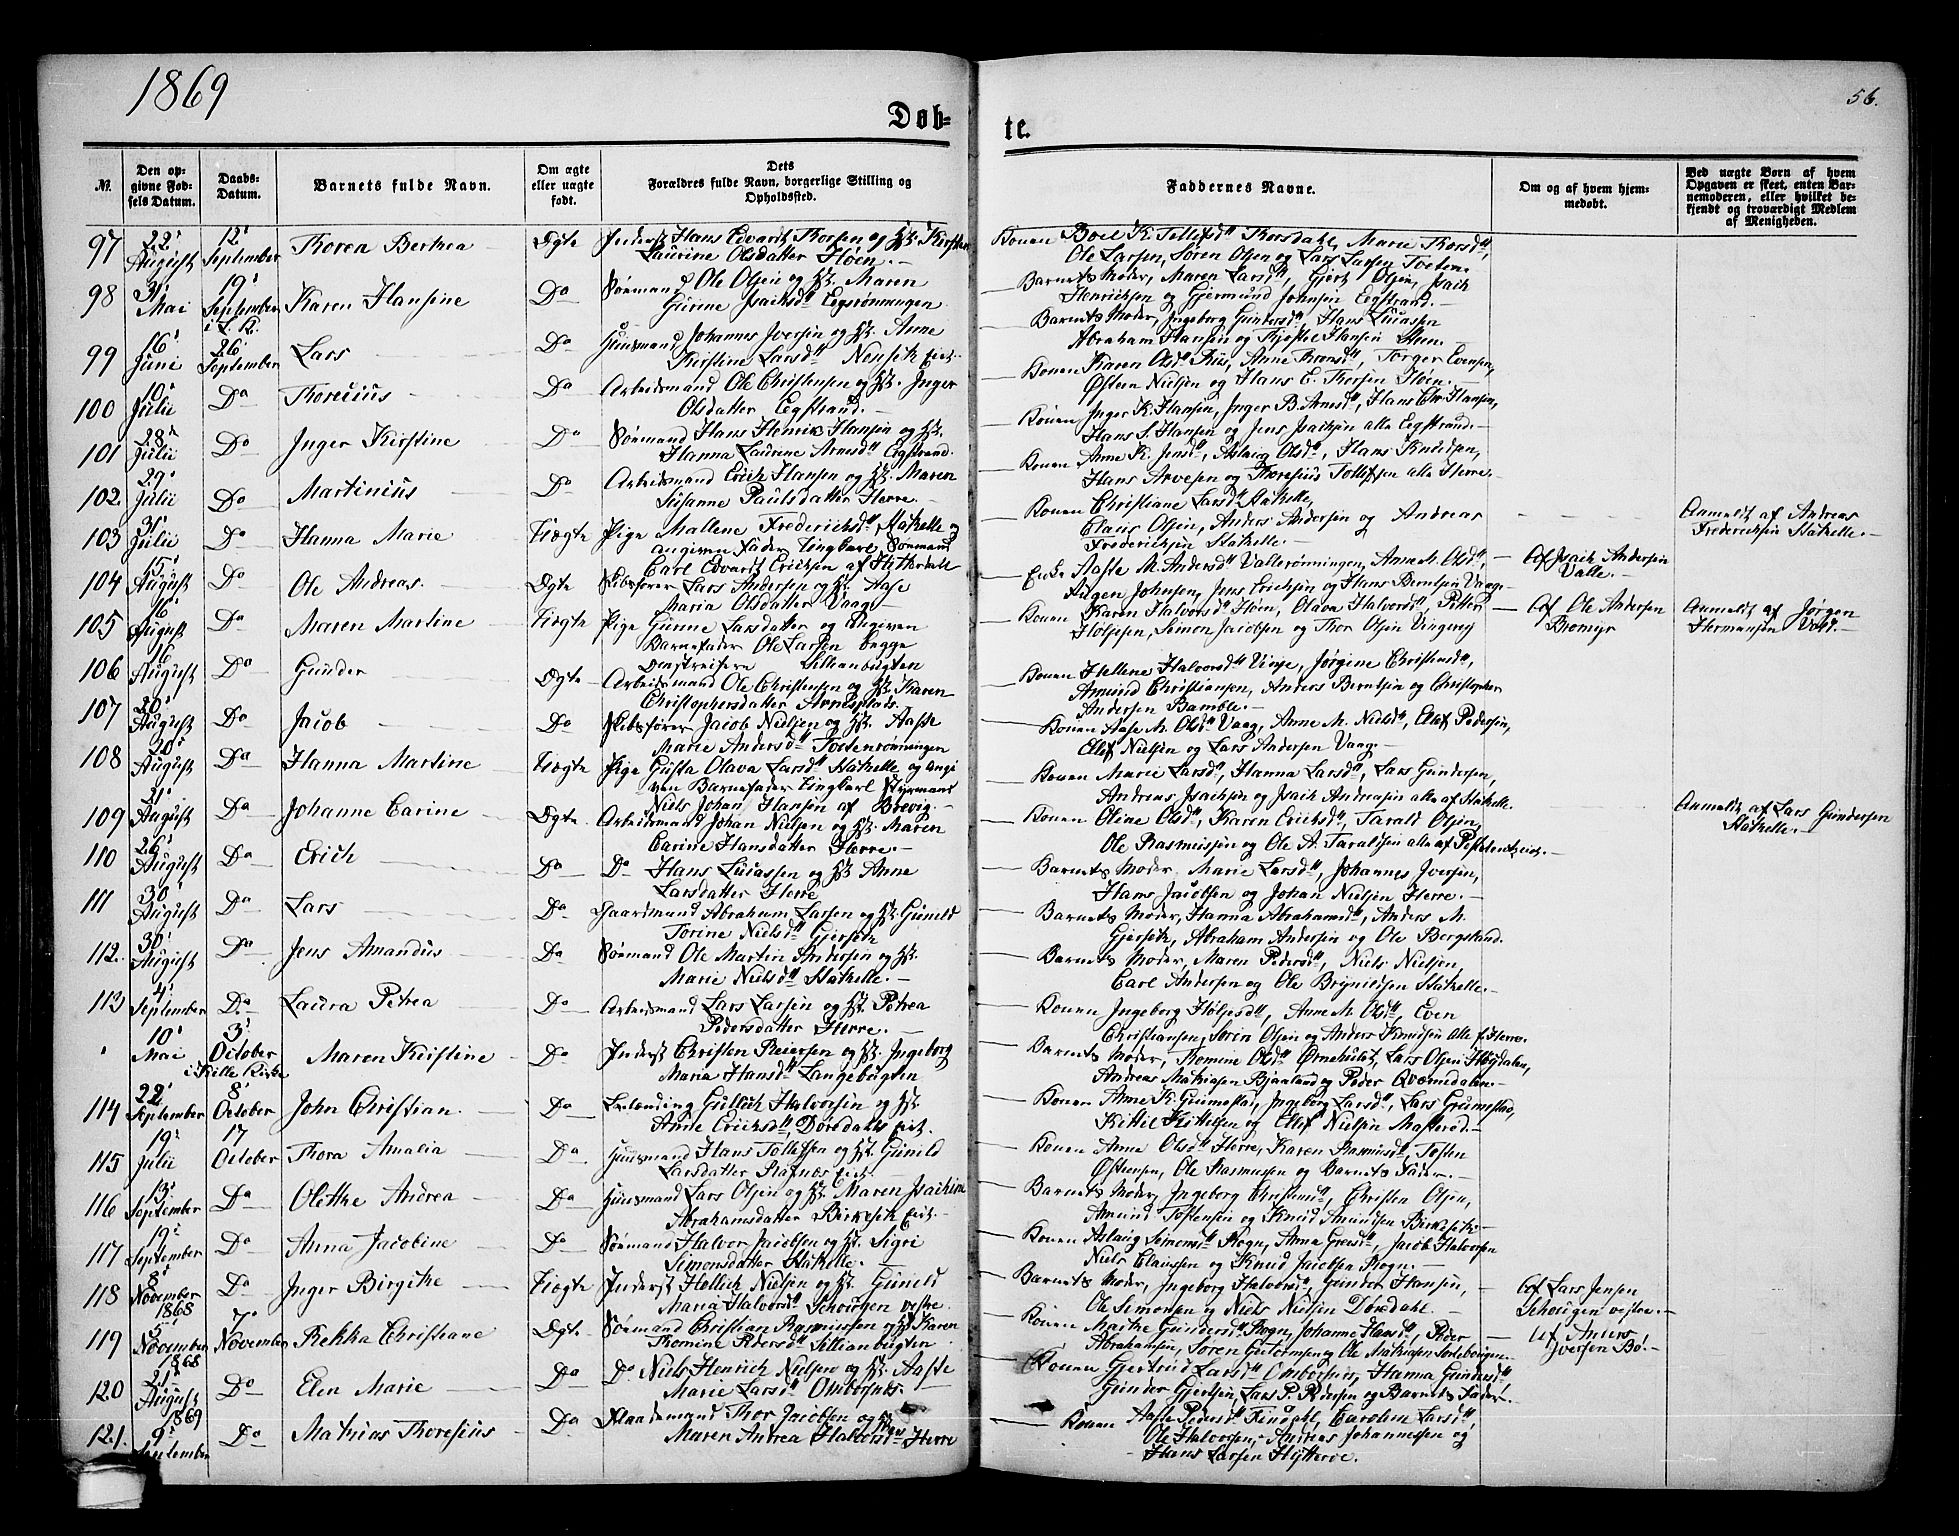 1869
56.
Døb=
te.
№.
Den op-
givne Fød-
sels Datum.
Daabs-
Datum.
Barnets fulde Navn.
Om ægte
eller uægte
født.
Dets
Forældres fulde Navn, borgerlige Stilling og
Opholdssted.
Faddernes Navne.
Om og af hvem hjem-
medøbt.
Ved uægte Børn af hvem
Opgaven er skeet, enten Bar-
nemoderen, eller hvilket be-
kjendt og troværdigt Medlem
af Menigheden.
97 22 August 12 September Thorea Berthea Ægte Inderst Hans Edvard Thorsen og Hst. Kirsten
Laurine Olsdatter Høen.
Konen Boel K. Tollefsd. Thorsdahl, Marie Thorsd.,
Ole Larsen, Søren Olsen og Lars Larsen Tveten.
98 31 Mai 19 September i L. K. Karen Hansine Do Sømand Ole Olsen og Hst. Maren
Gunne Isaksd. Eegsrønningen
Barnets Moder, Maren Larsd., Gjert Olsen, Isak
Henriksen og Gjermund Johnsen Eegstrand.
99 16 Juni 26 September Lars Do Huusmand Johannes Iversen og Hst. Anne
Kirstine Larsd. Nenseth eiet.
Barnets Moder, Ingeborg Gundersd. Hans Lucassen
Abraham Hansen og Kjøstel Hansen
100 10 Juli Do Thorenius Do Arbeidsmand Ole Christensen og Hst. Inger
Olsdatter Eegstrand.
Konen Karen Olsd. Riis, Anne Thronsd., Torger Evensen,
Østen Nielsen og Hans E. Thorsen Høen.
101 28 Juli Do Inger Kirstine Do Sømand Hans Henrik Hansen og Hst.
Hanna Laurine Arnesd. Eegstrand.
Konen Inger K. Hansen, Inger B. Arnesd., Hans Chr. Hansen,
Hans S. Hansen og Jens Isaksen alle Eegstrand.
102. 29 Juli Do Martinius Do Arbeidsmand Erich Hansen og Hst. Maren
Susanne Paulsdatter Herre.
Konen Anne K. Jensd., Aslaug Olsd., Hans Knudsen,
Hans Arvesen og Thoresius Tollefsen alle Herre.
103 31 Juli Do Hanna Marie Uægte Pige Mallene Frederichsd. Stathelle og
angiven Fader Ungkarl Sømand
Carl Edvard Ericksen af Hitterdal
Konen Christiane Larsd. Stathelle,
Claus Olsen, Anders Andersen og Andreas
Frederichsen Stathelle.
Anmeldt af Andreas
Frederichsen Stathelle.
104 15 August Do Ole Andreas. Ægte Skibsfører Lars Andersen og Hst. Aase
Maria Olsdatter Vaag
Enke Aaste M. Andersd. Vallerønningen, Anne M. Olsd.,
Augen Johnsen, Jens Ericksen og Hans Berntsen Vaag
Af Isak Andersen
Valle.
105 16 August Do Maren Martine Uægte Pige Gunne Larsdatter og angiven
Barnefader Ole Larsen begge
Omstreifere Lillianbugten
Konen Karen Halvorsd. Høen, Olava Halvorsd., Petter
Holjesen, Simon Jacobsen og Thor Olsen Vingerei
Af Ole Andersen
Bromyr
Anmeldt af Jørgen
Hermansen Vold.
106 16 August Do Gunder Ægte Arbeidsmand Ole Christensen og Hst. Karen
Christophersdatter Arnesplads.
Konen Hellene Halvorsd. Vinje, Jørgine Christensd.,
Amund Christiansen, Anders Berntsen og Christopher
Andersen Bamble.
107 20 August Do Jacob Do Skibsfører Jacob Nielsen og Hst. Aaste
Marie Andersd. Tostenrønningen
Konen Aase M. Olsd. Vaag, Anne M. Nielsd., Ellef Pedersen,
Ellef Nielsen og Lars Andersen Vaag.
108 20 August Do Hanna Martine Uægte Pige Gusta Olava Larsd. Stathelle og angi
ven Barnefader Ungkarl Styrmand
Niels Johan Hansen af Brevig.
Konen Marie Larsd., Hanna Larsd., Lars Gundersen,
Andreas Isaksen og Isak Andreasen alle af Stathelle.
Anmeldt af Lars Gundersen
Stathelle.
109 21 August Do Johanne Carine Ægte Arbeidsmand Johan Nielsen og Hst. Maren
Carine Hansdatter Herre.
Konen Oline Olsd., Karen Ericksd., Tarald Olsen,
Ole Rasmussen og Ole A. Taraldsen alle af
110 26 August Do Erich Do Do Hans Lucassen og Hst. Anne
Larsdatter Herre
Barnets Moder, Marie Larsd., Johannes Iversen,
Hans Jacobsen og Johan Nielsen Herre.
111 30 August Do Lars Do Gaardmand Abraham Larsen og Hst. Gunild
Torine Nielsd. Gjerseth
Barnets Moder, Hanna Abrahamsd., Anders M.
Gjerseth, Abraham Andersen og Ole Bergsland.
112. 30 August Do Jens Amandus Do Sømand Ole Martin Andersen og Hst.
Marie Nielsd. Stathelle.
Barnets Moder, Maren Pedersd., Niels Nielsen,
Carl Andersen og Ole Brynildsen Stathelle.
113 4 September Do Laura Petrea Do Arbeidsmand Lars Larsen og Hst. Petrea
Pedersdatter Herre.
Konen Ingeborg Holjesd., Anne M. Olsd., Even
Christiansen, Søren Olsen og Anders Knudsen alle f. Herre.
" 10 Mai 3 October i Skille Kirke Maren Kirstine Do Inderst Christen Reiersen og Hst. Ingeborg
Maria Hansd. Langebugten
Barnets Moder, Thomine Olsd. Ørnehult, Lars Olsen Høgdalen,
Andreas Mathiasen Bjaaland og Peder Qvæmsdalen.
114 22 September 8 October John Christian Do Selvænding Gullich Halvorsen og Hst
Anne Ericksd., Dørsdals eiet.
Konen Anne K. Grimestad, Ingeborg Larsd., Lars Grimestad,
Kittil Kittelsen og Ellef Nielsen Masterød.
115 19 Juli 17 October Thora Amalia Do Huusmand Hans Tollefsen og Hst. Gunild
Larsdatter Rafnæs eiet.
Konen Anne Olsd. Herre, Karen Rasmusd., Tosten
Østensen, Ole Rasmussen og Barnets Fader.
116 13 September Do Olethe Andrea Do Huusmand Lars Olsen og Hst. Maren Isakine
Abrahamsdatter Birkeseth eiet.
Barnets Moder, Ingeborg Christensd., Christen Olsen,
Amund Tostensen og Knud Amundsen Birkeseth.
117 19 September Do Anna Jacobine Do Sømand Halvor Jacobsen og Hst. Sigri
Simonsdatter Stathelle.
Konen Aslaug Simonsd. Rogn, Anna Greisd., Jacob Halvorsen
Niels Claussen og Knud Jacobsen Rogn.
118 8 November 1868 Do Inger Birgithe Uægte Inderst Hellich Nielsen og Hst. Gunild
Maria Halvorsd. Schougen vestre.
Barnets Moder, Ingeborg Halvorsd., Gunder Hansen,
Ole Simonsen og Niels Nielsen Dørsdahl.
Af Lars Jensen
Schougen vestre.
119 5 November 1868 7 November Rekka Christiane Ægte Sømand Christian Rasmussen og Hst. Karen
Thomine Pedersd. Lillianbugten
Konen Maithe Gundersd. Rogn, Johanne Hansd., Peder
Abrahamsen, Søren Guttormsen og Ole Mathiesen
Af Anders
Iversen Bø.
120 21 August 1869 Do Elen Marie Do Do Niels Henrich Nielsen og Hst. Aaste
Marie Larsd. Ombordsnes.
Konen Gjertrud Larsd. Ombordsnes, Hanna Gundersd.,
Gunder Gjertsen, Lars P. Pedersen og Barnets Fader.
121. 9 September Do Mathias Thoresius Do Thor Jacobsen og Hst
Maren Andrea Halvorsd. Herre
Konen Aaste Pedersd. Findahl, Caroline Larsd.,
Ole Halvorsen, Andreas Johannessen og
Hans Larsen Hytterøe.